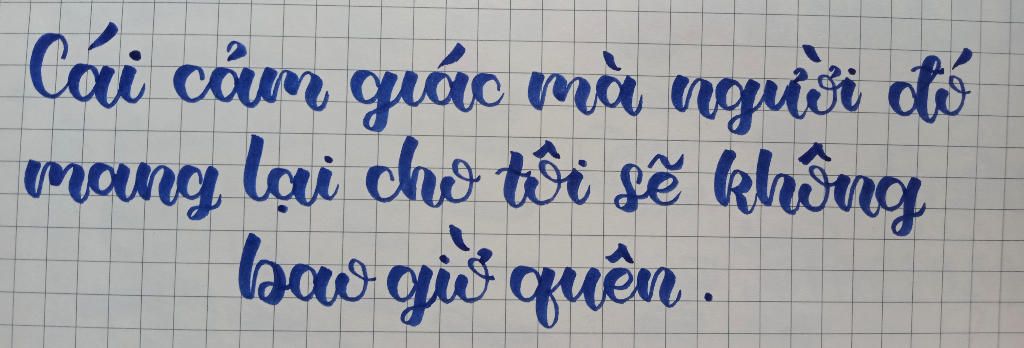 Cái cảm giác mà người đó
mang lại cho tôi sẽ không
bao giờ quên.